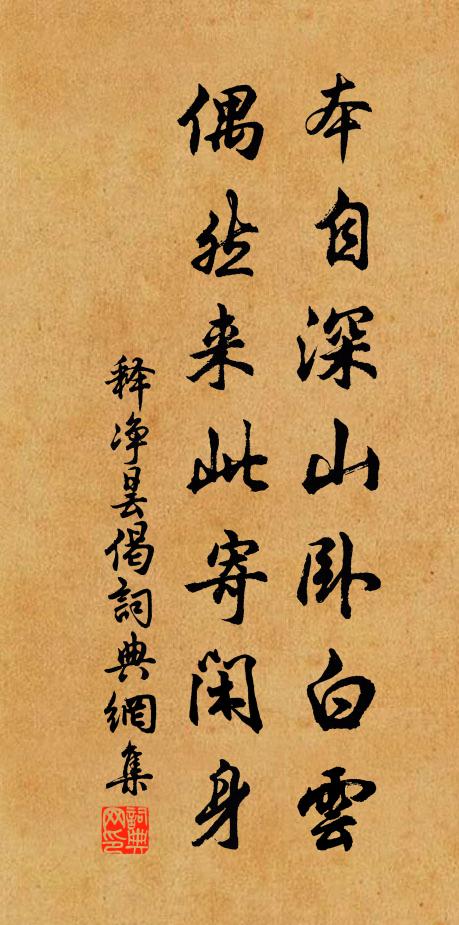 本自深山卧白雲
偶然来此寄閑身
释净昙偈詞典網集
詞典
网印